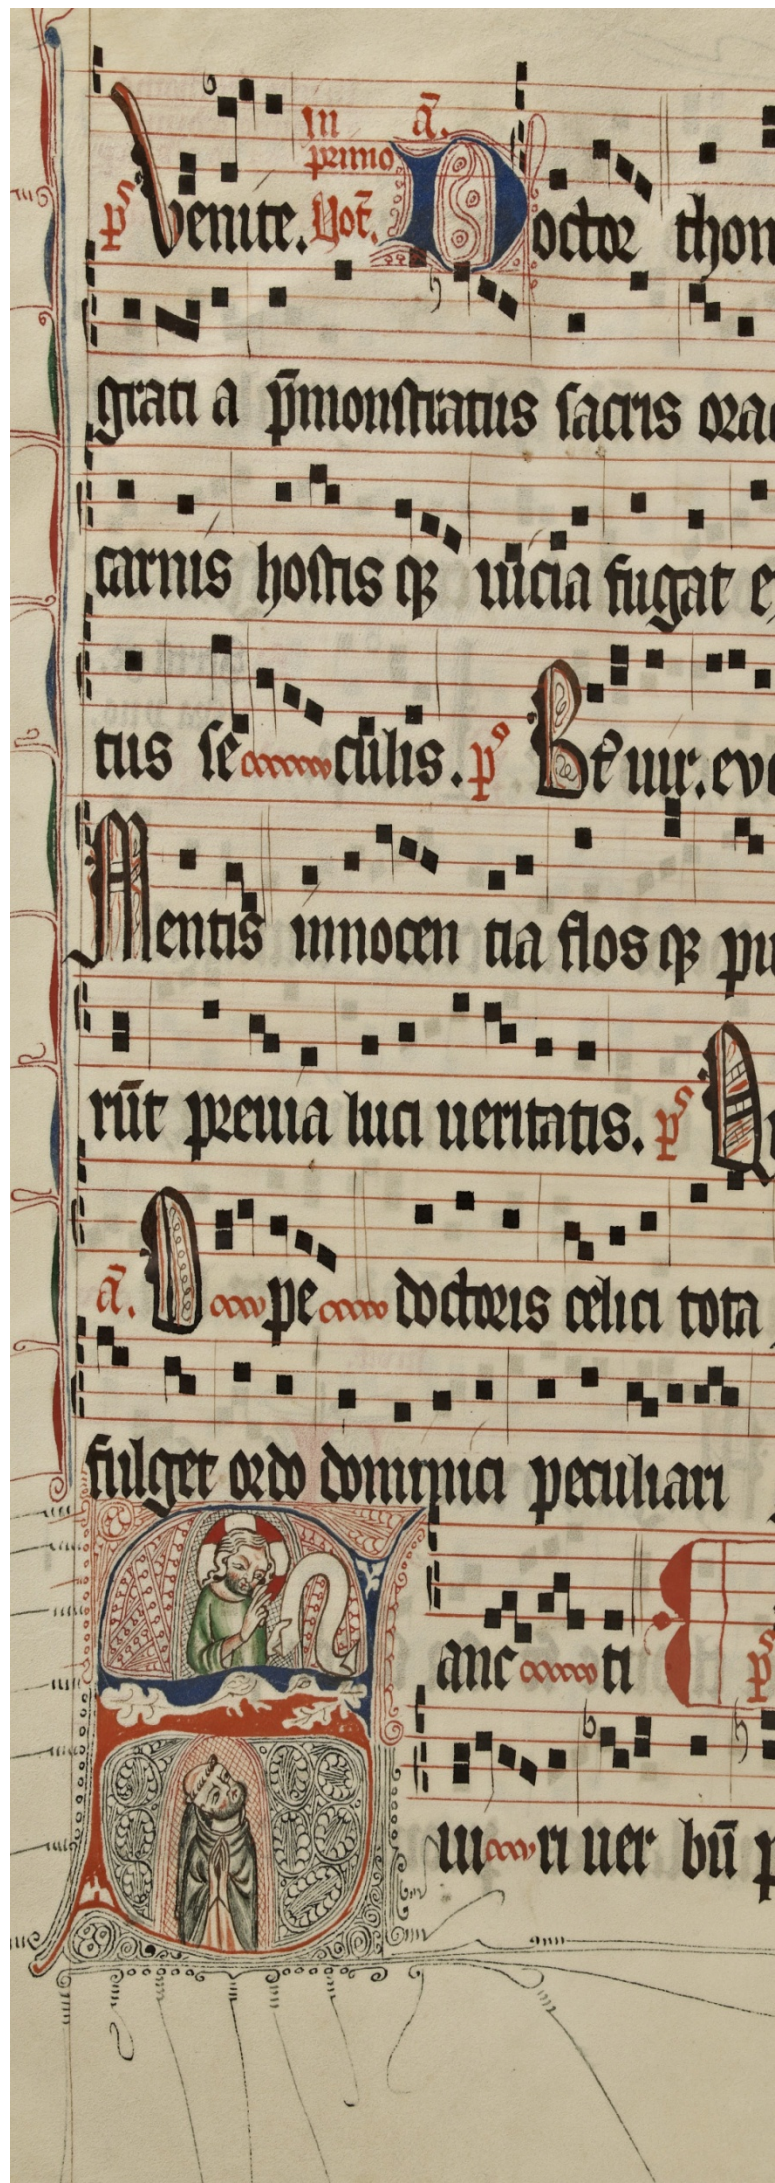 ps Venite. In primo Noct̄. ā. Doctor thom
grati a p̄monstratus sacris orac
carnis hostis qꝫ uicia fugat e
tus se culis. ps Bt̄ uir. evo
Mentis innocen tia flos qꝫ pu
rūt preuia luci ueritatis. ps
ā. O pe doctoris celici tota
fulget ordo dominici peculiari
anc ti ps
ui ri uer bū p